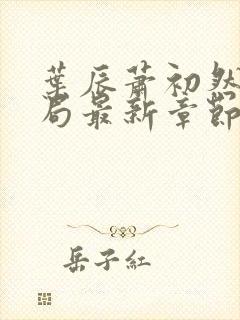 葉辰蕭初然
局最新章節
岳子紅